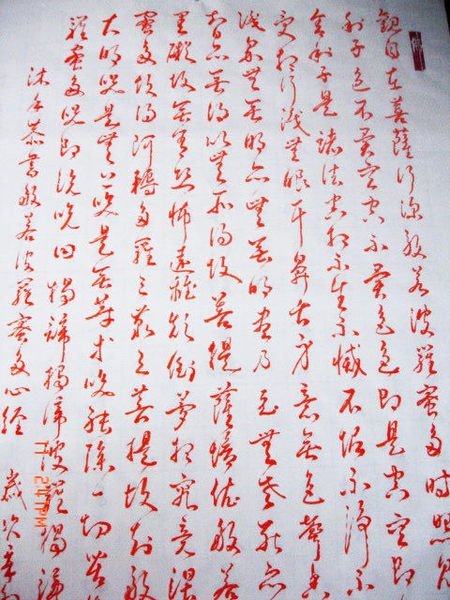 觀自在菩薩行深般若波羅蜜多時照見
利子色不異空空不異色色即是空空即
舍利子是諸法空相不生不滅不垢不淨不
受想行識無眼耳鼻舌身意無色聲香
識界無無明亦無無明盡乃至無老死亦
智亦無得以無所得故菩提薩埵依般若
罣礙故無有恐怖遠離顛倒夢想究竟涅
蜜多故得阿耨多羅三藐三菩提故知般
大明咒是無上咒是無等等咒能除一切苦
羅蜜多咒即說咒曰揭諦揭諦波羅揭諦
沐手恭書般若波羅蜜多心經 歲次辛